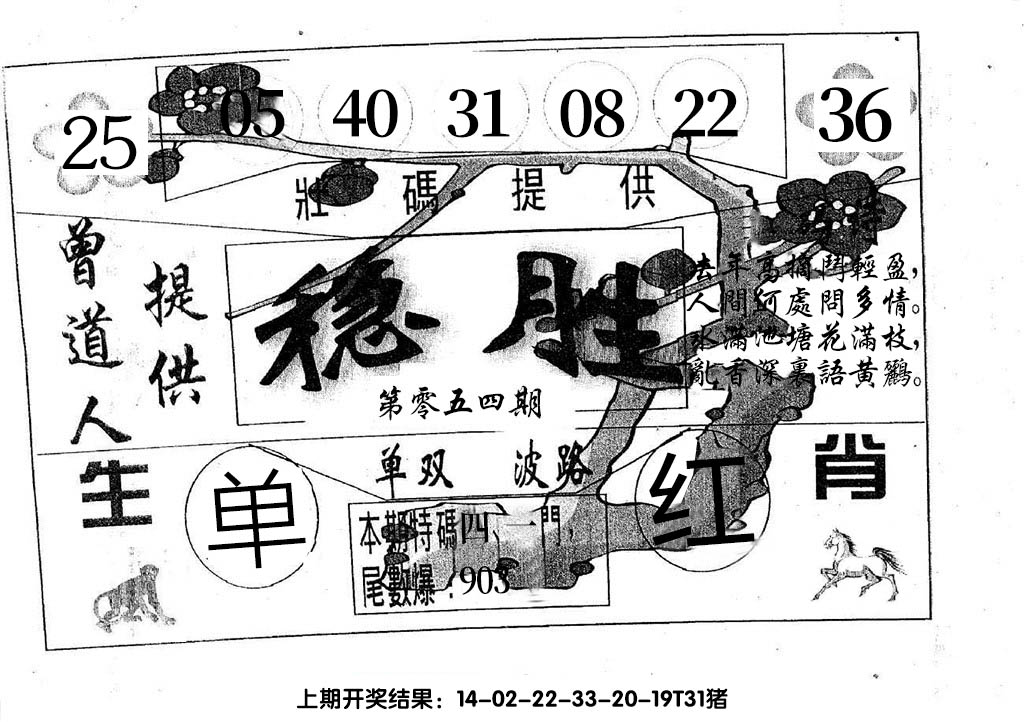 25 05 40 31 08 22 36
壯碼提供
曾道人
提供
稳胜
第零五四期
去年高摘鬥輕盈,
人間何處問多情。
水滿池塘花滿枝,
亂香深裏語黃鸝。
单双 波路
生肖
单
红
本期特碼四、一門,
尾數爆:903
上期开奖结果:14-02-22-33-20-19T31猪